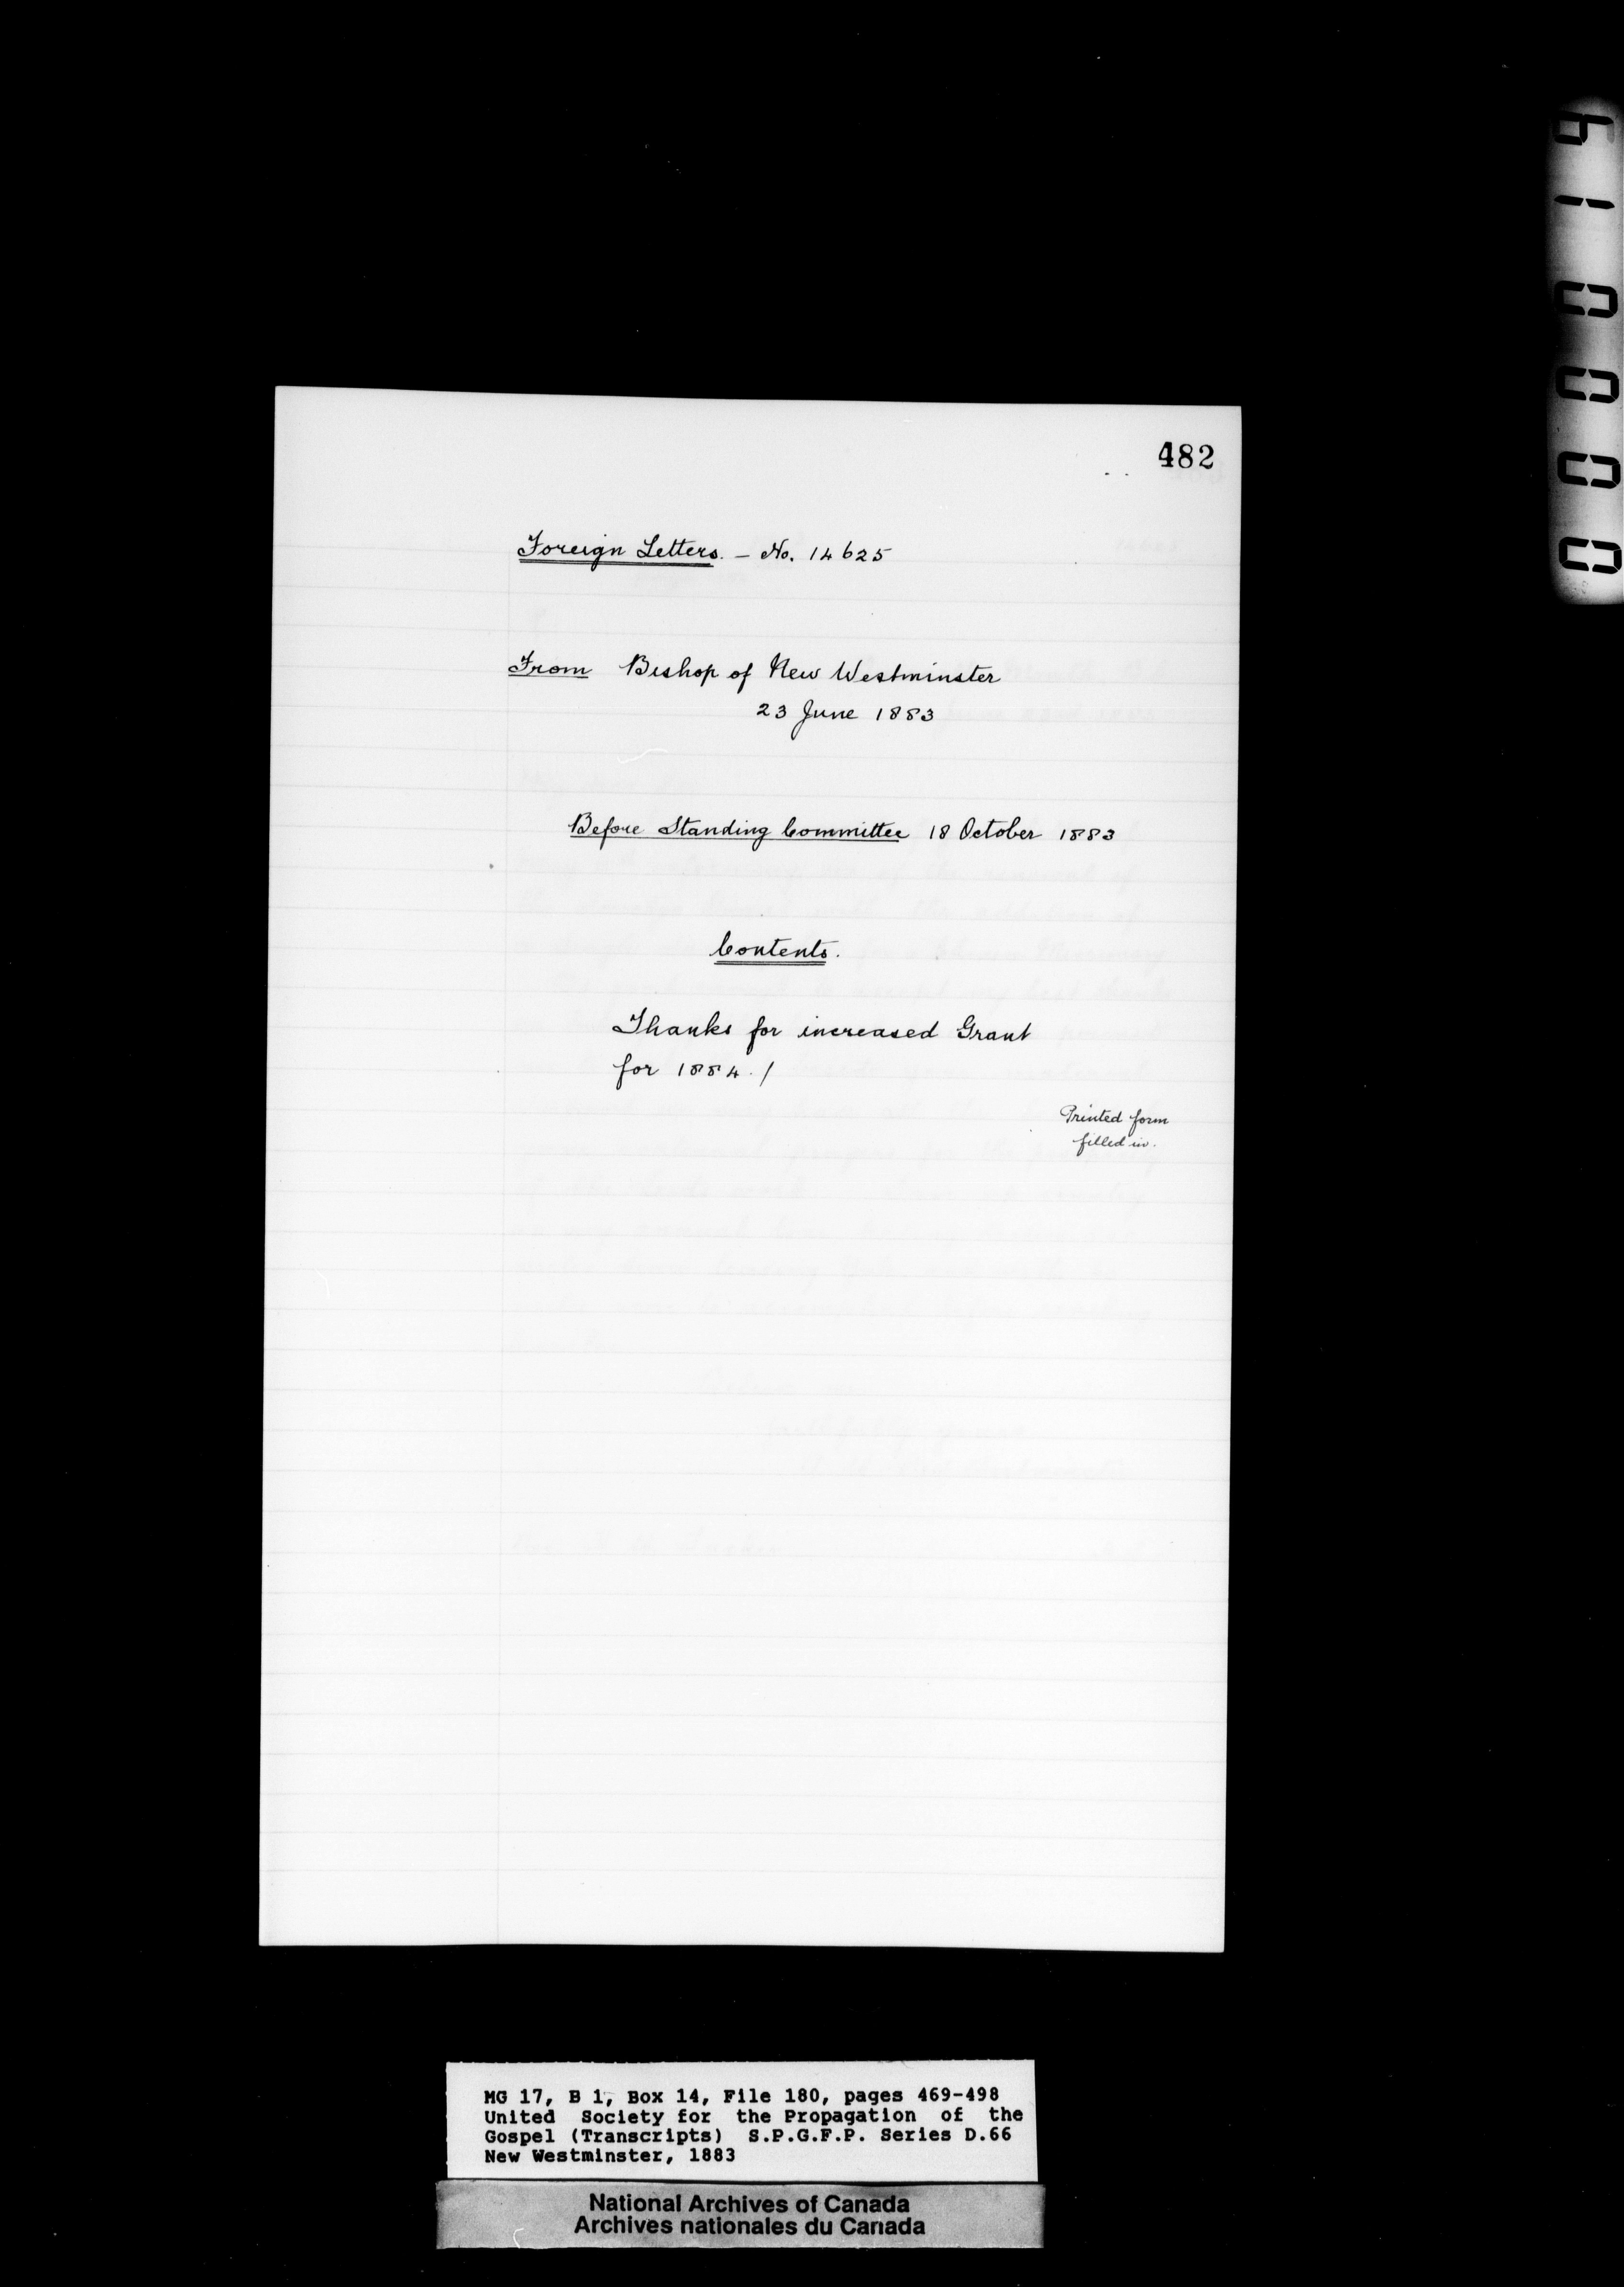 482
Foreign Letters. – No. 14625
From Bishop of New Westminster
23 June 1883
Before Standing Committee 18 October 1883
Contents.
Thanks for increased Grant
for 1884. /
Printed form
filled in.
MG 17, B 1, Box 14, File 180, pages 469-498
United Society for the Propagation of the
Gospel (Transcripts) S.P.G.F.P. Series D.66
New Westminster, 1883
National Archives of Canada
Archives nationales du Canada